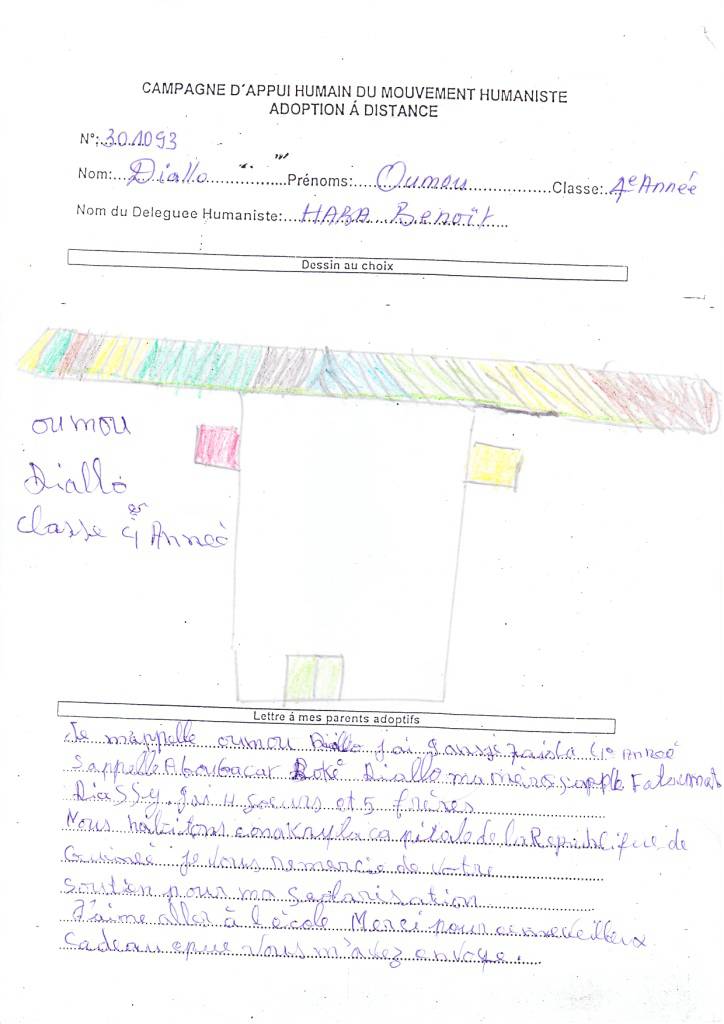 CAMPAGNE D´APPUI HUMAIN DU MOUVEMENT HUMANISTE
ADOPTION Á DISTANCE
N°: 301093
Nom: Diallo Prénoms: Oumou Classe: 4e Année
Nom du Deleguee Humaniste: HABA Benoït
Dessin au choix
oumou
Diallo
classe 4 Anneé
Lettre á mes parents adoptifs
Je m'appelle oumou Diallo j'ai 9 ans 4e Anneé
S'appelle Aboubacar Diallo ma
DiaSSy. j'ai 4 soeurs et 5 frères
Nous habitons conakry la capitale de la Republifue de
Guineé je vous remercie de votre
soutien pour ma Scolarisation
J'aime aller à l'école Merci pour ce merveilleux
cadeau que vous m'avez envoye.